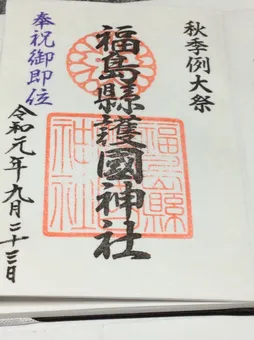 秋季例大祭
福島縣護國神社
福島縣
神社
奉祝御即位
令和元年九月二十三日